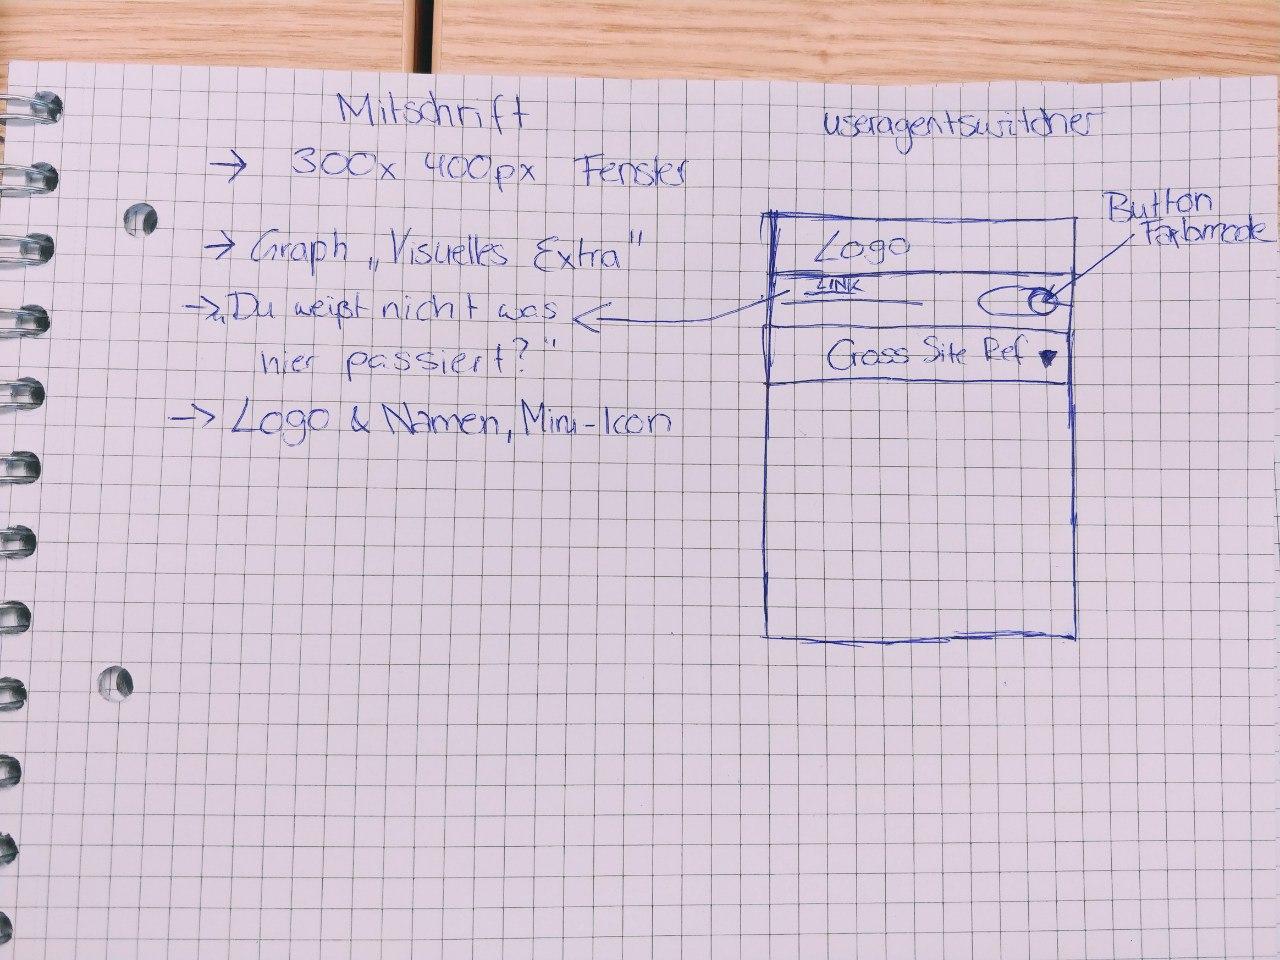 Mitschrift
→ 300x 400px Fenster
→ Graph „Visuelles Extra"
→ „Du weißt nicht was
hier passiert?"
→ Logo & Namen, Mini-Icon
useragentswitcher
Button
Farbmode
Logo
LINK
Cross Site Ref ▼